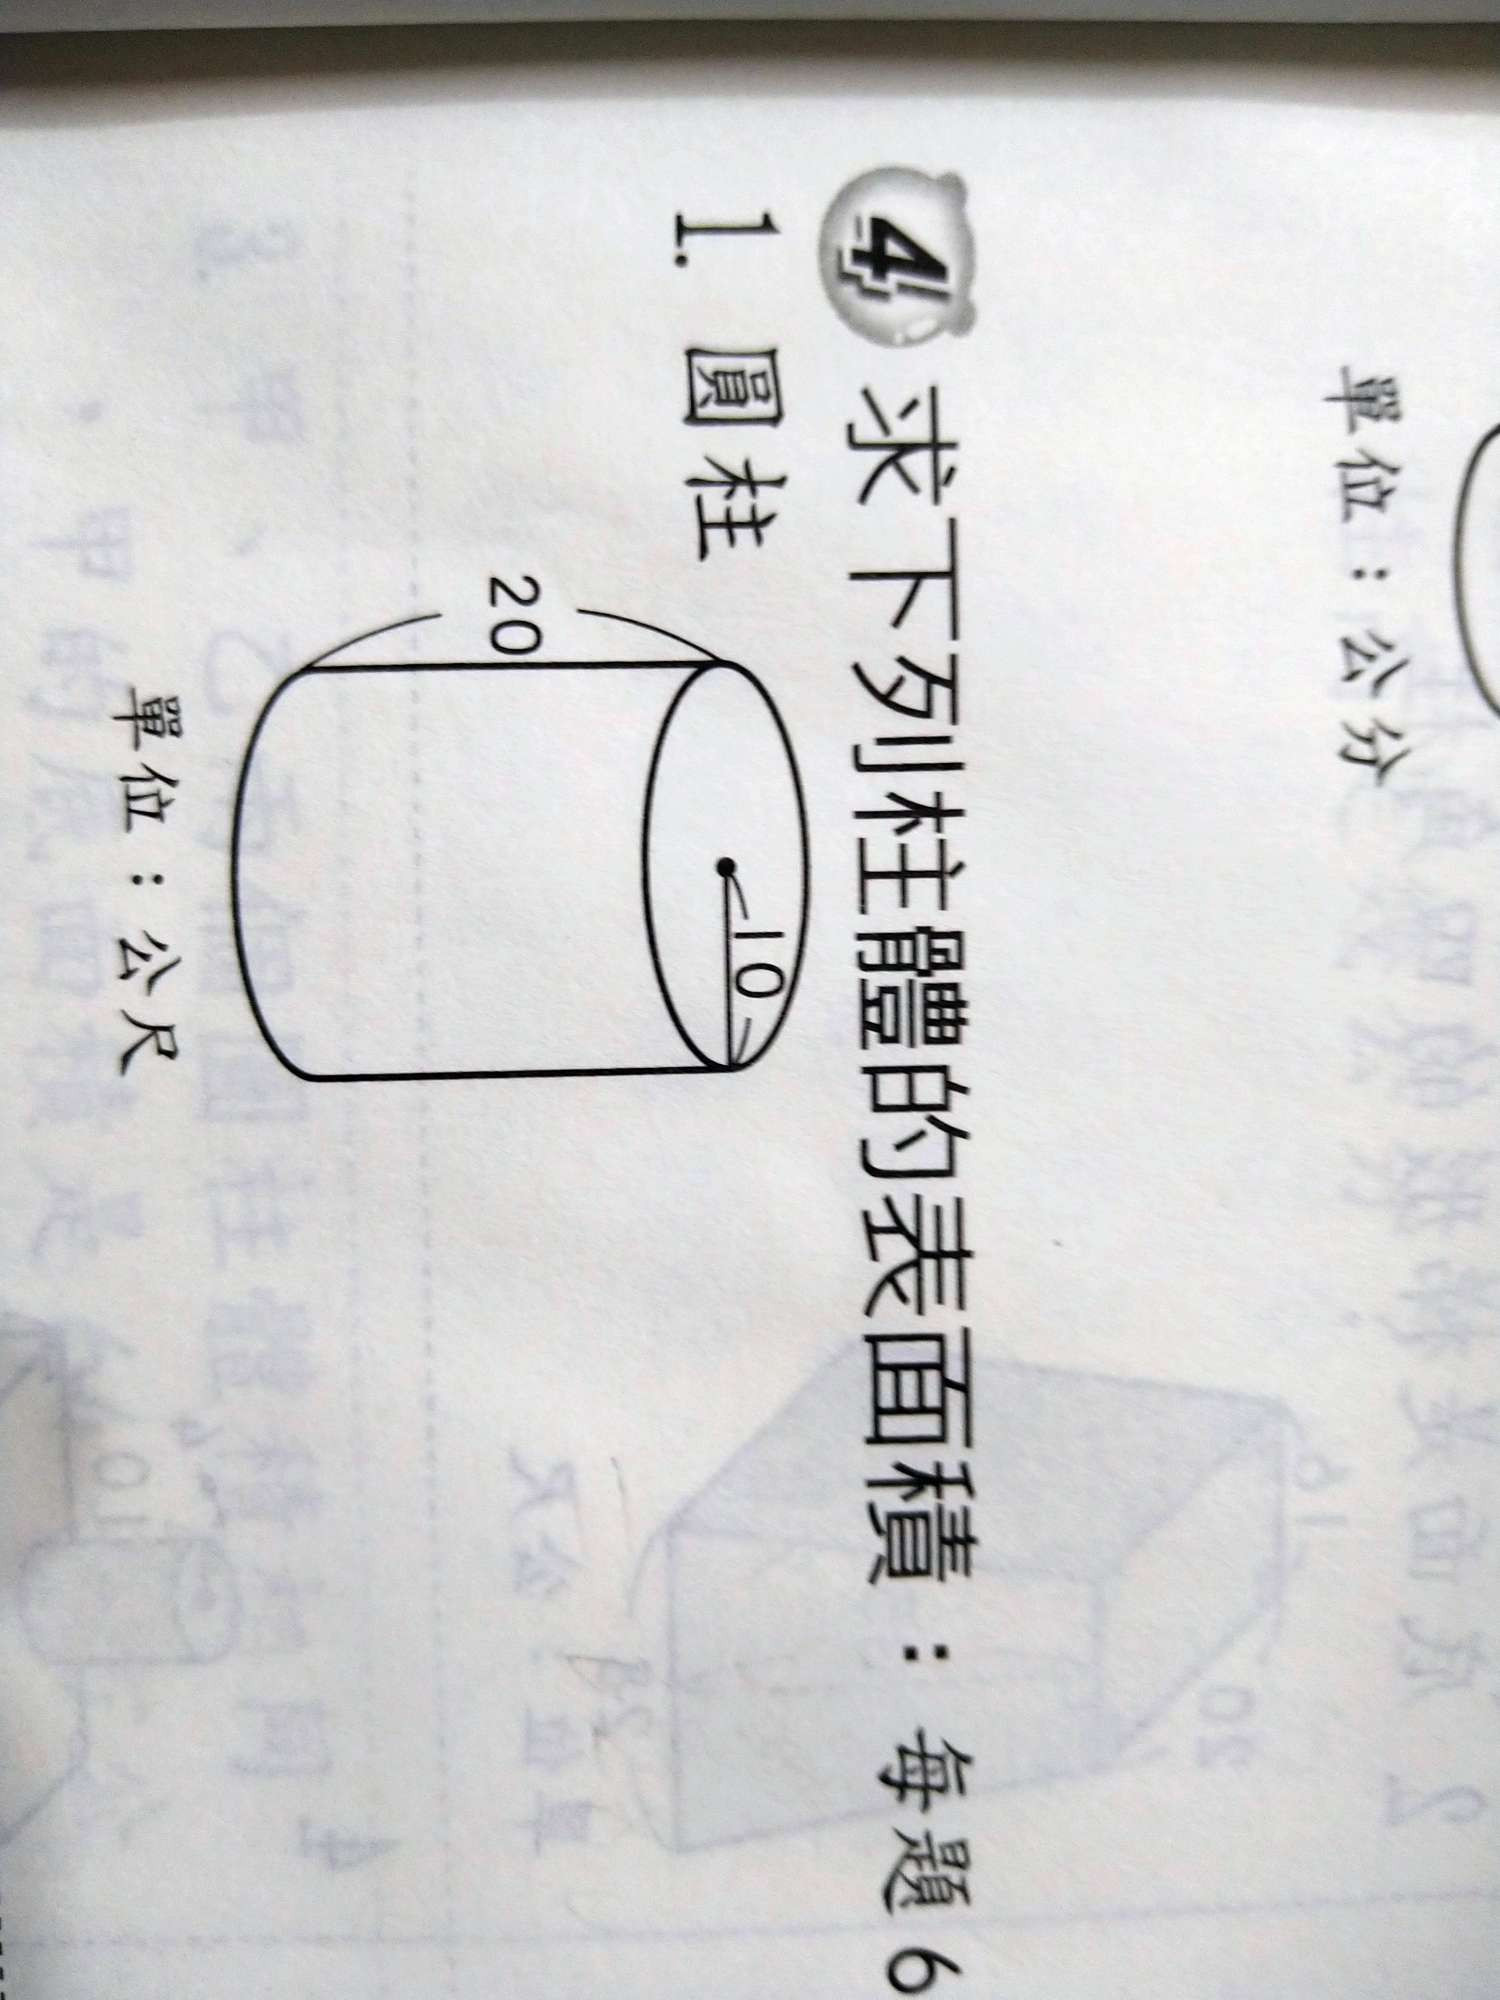 單位：公分
4 求下列柱體的表面積：每題6
1. 圓柱
20
10
單位：公尺